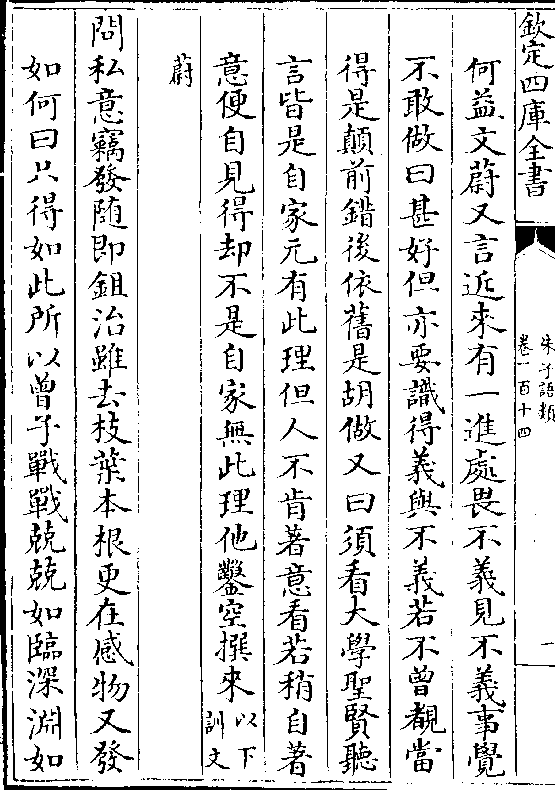 欽定四庫全書
朱子語類
卷一百十四
一
何益文蔚又言近來有一進處畏不義見不義事覺
不敢做曰甚好但亦要識得義與不義若不曾覩當
得是顛前錯後依舊是胡做又曰須看大學聖賢聽
言皆是自家元有此理但人不肯著意看若稍自著
意便自見得却不是自家無此理他鑿空撰來以下訓文
蔚
問私意竊發随即鉏治雖去枝葉本根更在感物又發
如何曰只得如此所以曾子戰戰兢兢如臨深淵如